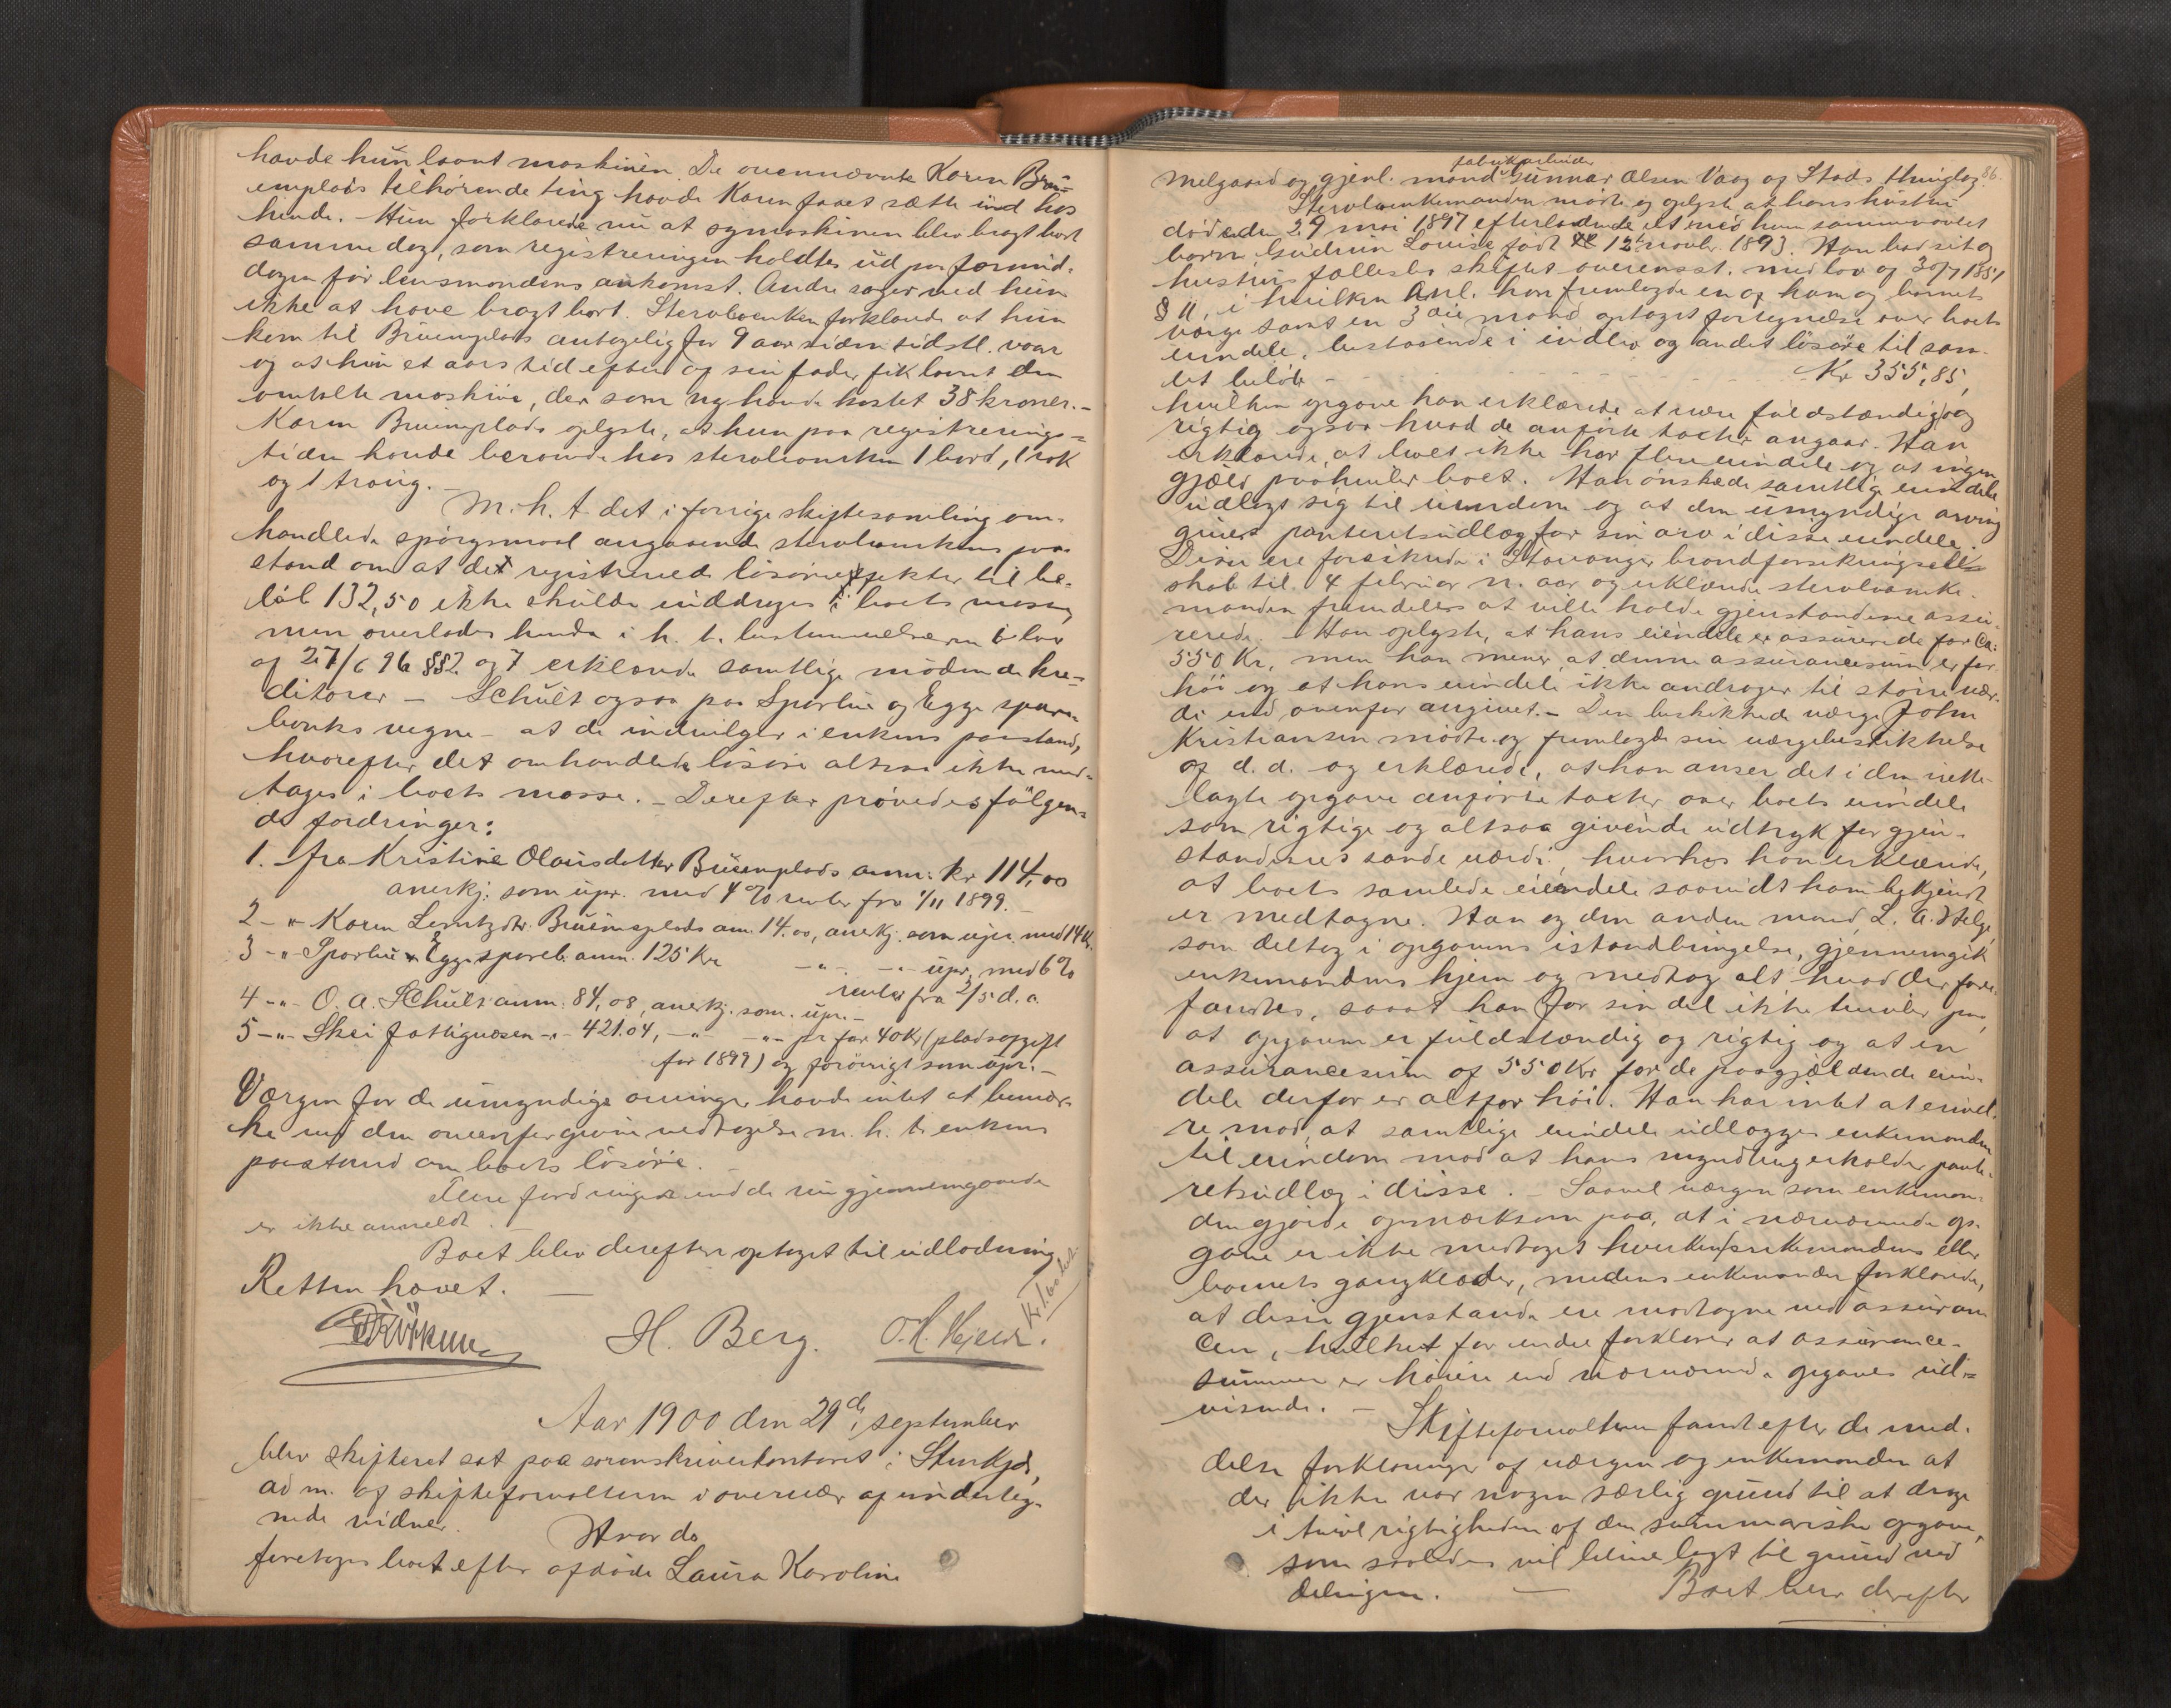 havde hun laant maskinen. De ovennævnte Karen Bru-
emplads tilhørende ting havde Karen faaet sætte ind hos
hende. Hun forklarede nu at symaskinen blev bragt bort
samme dag, som registreringen holdtes ud paa formid-
dagen før lensmandens ankomst. Andre sager ved hun
ikke at have bragt bort. Stervboenken forklarede at hun
kom til Bruemplads antagelig for 9 aar siden sidstl. vaar
og at hun et aars tid efter af sin fader fik laant den
omtalte maskine, der som ny havde kostet 38 kroner. -
Karen Bruemplads oplyste, at hun paa registrerings-
tiden havde beroende hos stervboenken 1 bord, 1 rok
og 1 traug. -
M. h. t. det i forrige skiftesamling om-
handlede spørgsmaal angaaende stervboenkens paa-
stand om at det registrerede løsøreeffekter til be-
løb 132,50 ikke skulde inddrages i boets masse,
men overlades hende i h. t. bestemmelserne i lov
af 27/6 96 §§ 2 og 7 erklærede samtlige mødende kre-
ditorer - Schult ogsaa paa Sparbu og Egge spare-
banks vegne - at de indvilger i enkens paastand,
hvorefter det omhandlede løsøre altsaa ikke med-
tages i boets masse. - Derefter prøvedes følgen-
de fordringer:
1. fra Kristine Olausdatter Bruemplads anm: kr 114,00
anerkj: som upr. med 4 % renter fra 1/11 1899. -
2 - " Karen Lorntzdtr. Bruemsplads anm. 14.00, anerkj. som upr. med 14 Kr.
3 - " Sparbu & Egge spareb. anm. 125 Kr -"- -"- upr. med 6 %
renter fra 2/5 d. a.
4 -"- O. A. Schult anm: 84,08, anerkj. som upr. -
5 -"- Skei fattigvæsen -"- 421.04, -"- -"- pr for 40 Kr (pladsafgift
for 1899) og forøvrigt som upr. -
Værgen for de umyndige arvinger havde intet at bemær-
ke ved den ovenfor givne vedtagelse m. h. t. enkens
paastand om boets løsøre.
Flere fordringer end de nu gjennemgaaede
er ikke anmeldt. -
Boet blev derefter optaget til udlodning
Retten hævet. -
H. Berg. O. H. Hejelde.
Aar 1900 den 29de september
blev skifteret sat paa sorenskriverkontoret i Stenkjær,
adm. af skifteforvalteren i overvær af underteg-
nede vidner. Hvorda
foretoges boet efter afdøde Laura Karoline
86.
fabrikarbeider
Melgaard og gjenl. mand Gunnar Olsen Vaag af Stods thinglag
Stervboenkemanden mødte og oplyste at hans hustru
døde den 29 mai 1897 efterladende et med ham sammenavlet
barn Gudrun Louise født 12 novbr. 1893. Han bad sit og
hustrus fællesbo skiftet overensst. med lov af 30/7 1851
§ 11, i hvilken anl. han fremlagde en af ham og barnets
værge samt en 3die mand optaget fortegnelse over boets
eiendele, bestaaende i indbo og andet løsøre til sam-
let beløb - - - Kr 355,85,
hvilken opgave han erklærede at være fuldstændig og
rigtig ogsaa hvad de anførte taxter angaar. Han
erklærede, at boet ikke har flere eiendele og at ingen
gjæld paahviler boet. Han ønskede samtlige eiendele
udlagt sig til eiendom og at den umyndige arving
gives panteretsudlæg for sin arv i disse eiendele.
Disse ere forsikrede i Stavanger brandforsikringssel-
skab til 4 februar n. aar og erklærede stervboenke-
manden fremdeles at ville holde gjenstandene assu-
rerede. Han oplyste, at hans eiendele er assurerede for ca:
550 Kr, men han mener, at denne assurancesum er for
høi og at hans eiendele ikke andrager til større vær-
di end ovenfor angivet. - Den beskikkede værge John
Kristiansen mødte og fremlagde sin værgebeskikkelse
af d. d. og erklærede, at han anser det i den rette-
lagte opgave anførte taxter over boets eiendele
som rigtige og altsaa givende udtryk for gjen-
standenes sande værdi, hvorhos han erklærede,
at boets samlede eiendele saavidt ham bekjendt
er medtagne. Han og den anden mand, L. A. Helge,
som deltog i opgavens istandbringelse, gjennemgik
enkemandens hjem og medtog alt hvad der fore-
fandtes, saaat han for sin del ikke tvivler paa,
at opgaven er fuldstændig og rigtig og at en
assurancesum af 550 Kr for de paagjældende eien-
dele derfor er altfor høi. Han har intet at erind-
re mod, at samtlige eiendele udlægges enkemanden
til eiendom mod at hans myndling erholder pante-
retsudlæg i disse. - Saavel værgen som enkeman-
den gjorde opmærksom paa, at i nærværende op-
gave er ikke medtaget hverken enkemandens eller
barnets gangklæder, medens enkemanden forklarede,
at disse gjenstande ere medtagne ved assuran-
cen, hvilket for endel forklarer at assurance-
summen er høiere end nærværende opgaves ud-
visende. -
Skifteforvalteren fandt efter de med-
delte forklaringer af værgen og enkemanden at
der ikke var nogen særlig grund til at drage
i tvivl rigtigheden af den summariske opgave,
som saaledes vil blive lagt til grund ved
delingen. - Boet blev derefter